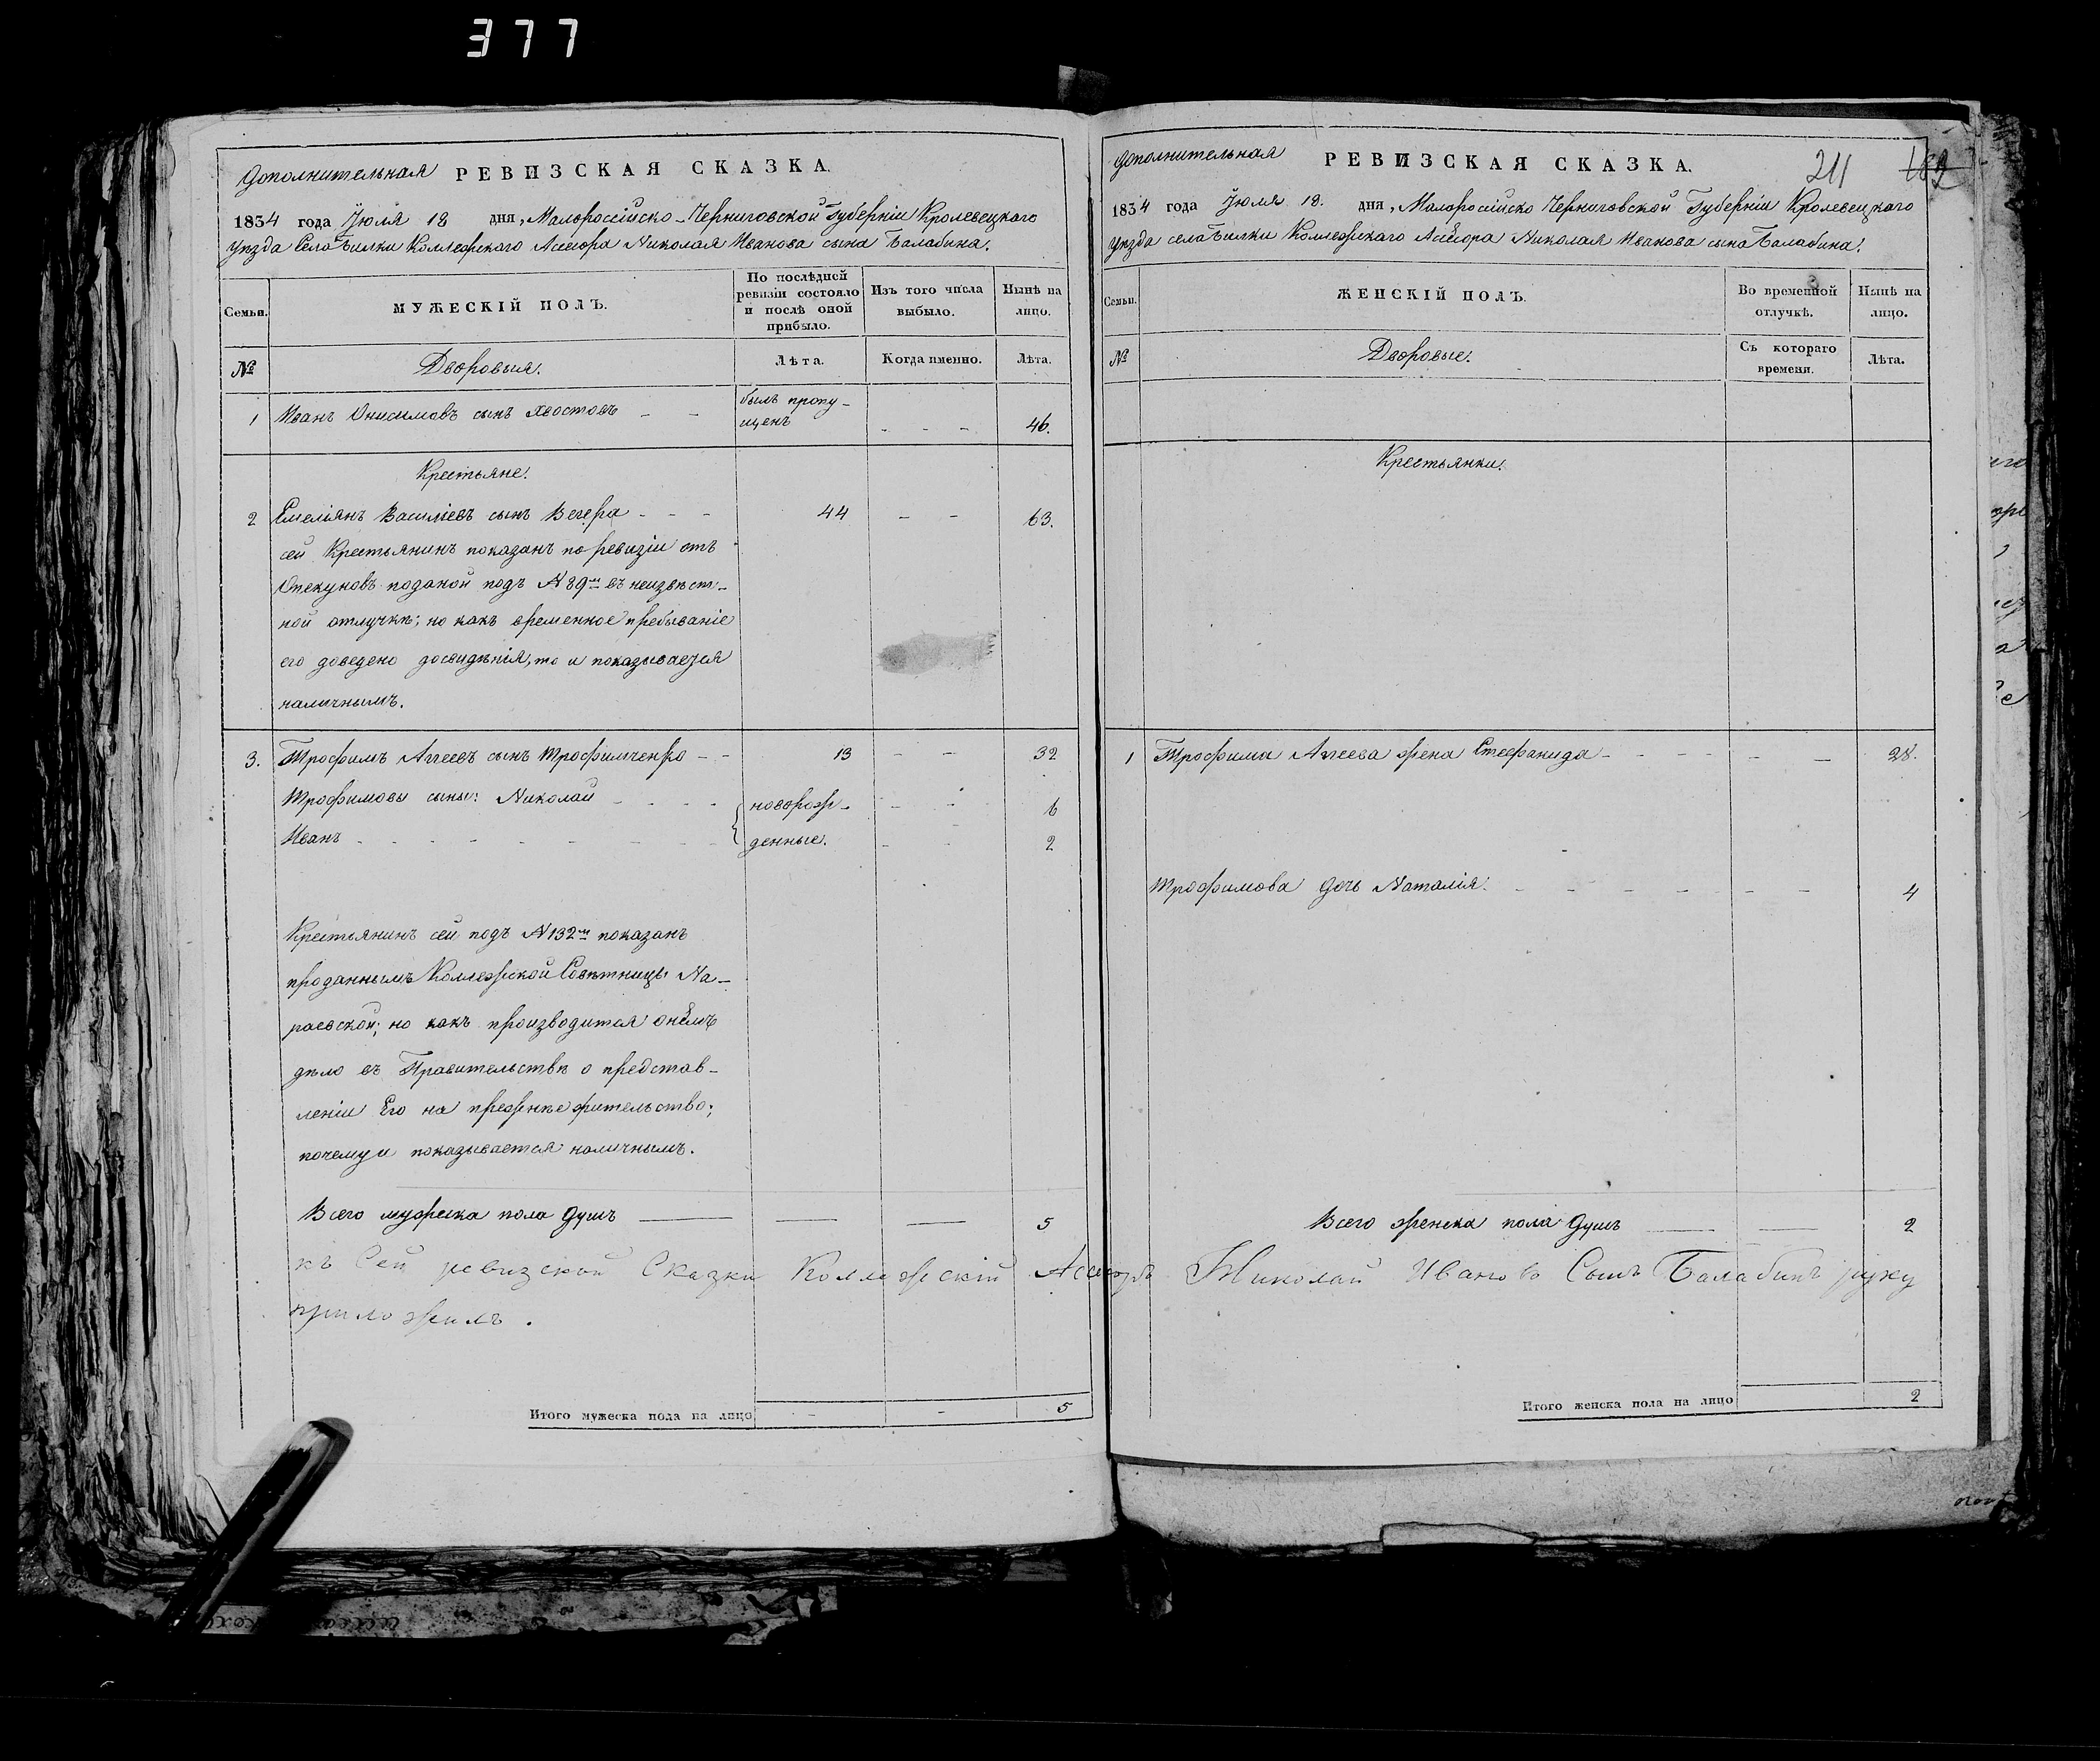 377
Дополнительная РЕВИЗСКАЯ СКАЗКА.
1834 года Іюля 18 дня, Малороссійско-Черниговской Губерніи Кролевецкаго
уѣзда Села Билки Коллежскаго Ассесора Николая Иванова сына Балабина.
Семьи.
МУЖЕСКІЙ ПОЛЪ.
По послѣдней ревизіи состояло и послѣ оной прибыло.
Изъ того числа выбыло.
Нынѣ на лицо.
№
Дворовыя.
Лѣта.
Когда именно.
Лѣта.
1 Иванъ Онисимовъ сынъ Хвостовъ - - былъ пропу-
щенъ - - - 46.
Крестьяне.
2 Емеліянъ Василіевъ сынъ Вечера - - - 44 - - 63.
сей Крестьянинъ показанъ по ревизіи отъ
Опекуновъ поданой подъ №89мъ въ неизвѣст-
ной отлучкѣ; но какъ временное пребываніе
его доведено досвидѣнія, то и показывается
наличнымъ.
3. Трофимъ Аггеевъ сынъ Трофимченко - - 13 - - 32
Трофимовы сыны: Николай - - - - новорож- - - 6
Иванъ - - - - - - - - денные. - - 2
Крестьянинъ сей подъ №132мъ показанъ
проданнымъ Коллежской Совѣтницы На-
раевской; но какъ производится онёмъ
дѣло въ Правительствѣ о представ-
леніи Его на прежнее жительство;
почему и показывается наличнымъ.
Всего мужеска пола душъ — — — 5
Итого мужеска пола на лицо - - 5
Дополнительная РЕВИЗСКАЯ СКАЗКА.
211 182
1834 года Іюля 18. дня, Малороссійско Черниговской Губерніи Кролевецкаго
уѣзда села Билки Коллежскаго Ассесора Николая Иванова сына Балабина.
Семьи.
ЖЕНСКІЙ ПОЛЪ.
Во временной отлучкѣ.
Нынѣ на лицо.
№
Дворовые.
Съ котораго времени.
Лѣта.
Крестьянки.
1 Трофима Аггеева жена Стефанида - - - - - - 28.
Трофимова дочь Наталія. - - - - - - - 4
Всего женска пола душъ — — 2
къ Сей ревизской Сказки Коллежскій Ассесоръ Николай Ивановъ Сынъ Балабинъ руку
приложилъ.
Итого женска пола на лицо 2